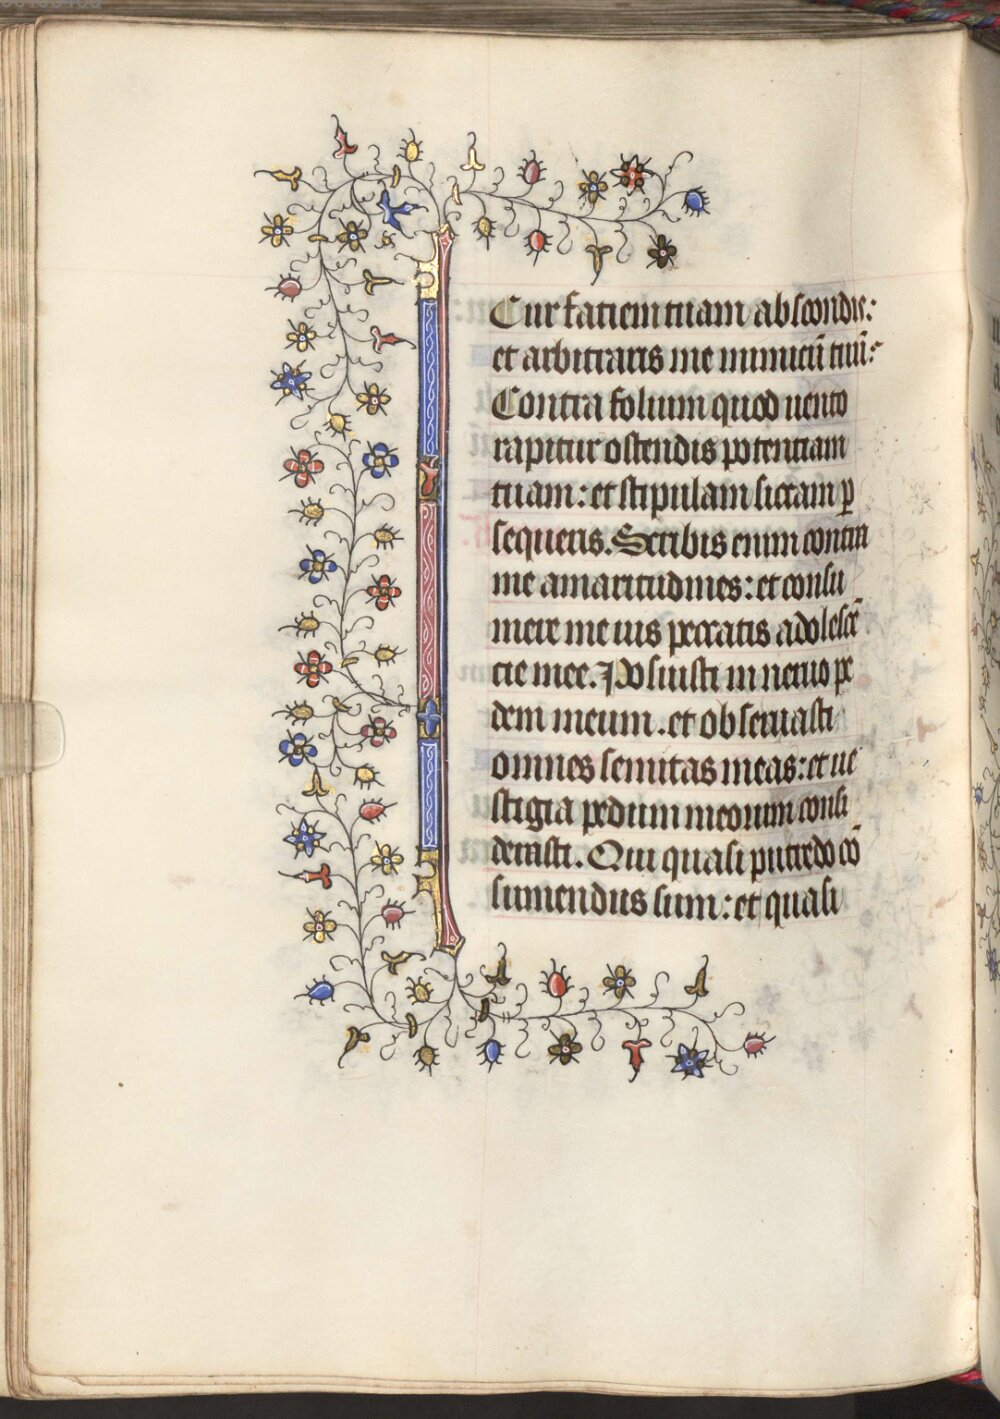 Cur faciem tuam abscondis:
et arbitraris me inimicū tuū:
Contra folium quod uento
rapitur ostendis potentiam
tuam: et stipulam siccam ꝑ
sequeris. Scribis enim contra
me amaritudines: et consu
mere me uis peccatis adolescē
cie mee. Posuisti in neruo pe
dem meum. et obseruasti
omnes semitas meas: et ue
stigia pedum meorum consi
derasti. Qui quasi putredo cō
sumendus sum: et quasi